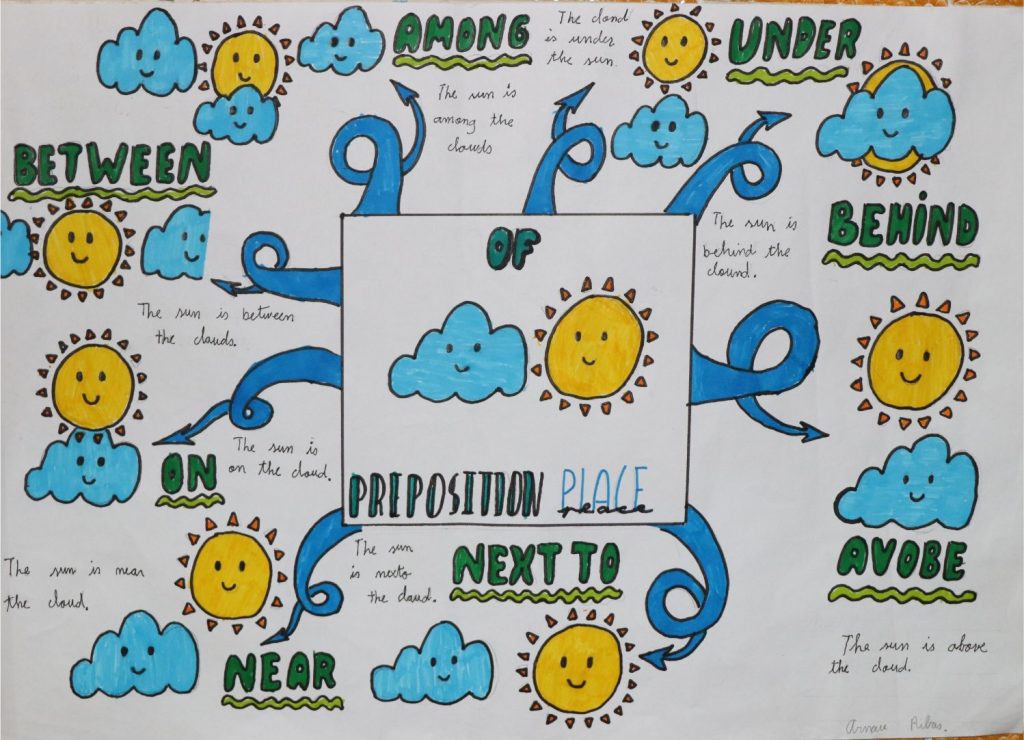 AMONG
The sun is
among the
clouds
The cloud
is under
the sun.
UNDER
BETWEEN
The sun is between
the clouds.
The sun is
behind the
clound.
BEHIND
OF
PREPOSITION PLACE
peace
ON
The sun is
on the cloud.
AVOBE
The sun is above
the cloud.
The sun is near
the cloud.
NEAR
The sun
is nexto
the cloud.
NEXT TO
Arnau Ribas.